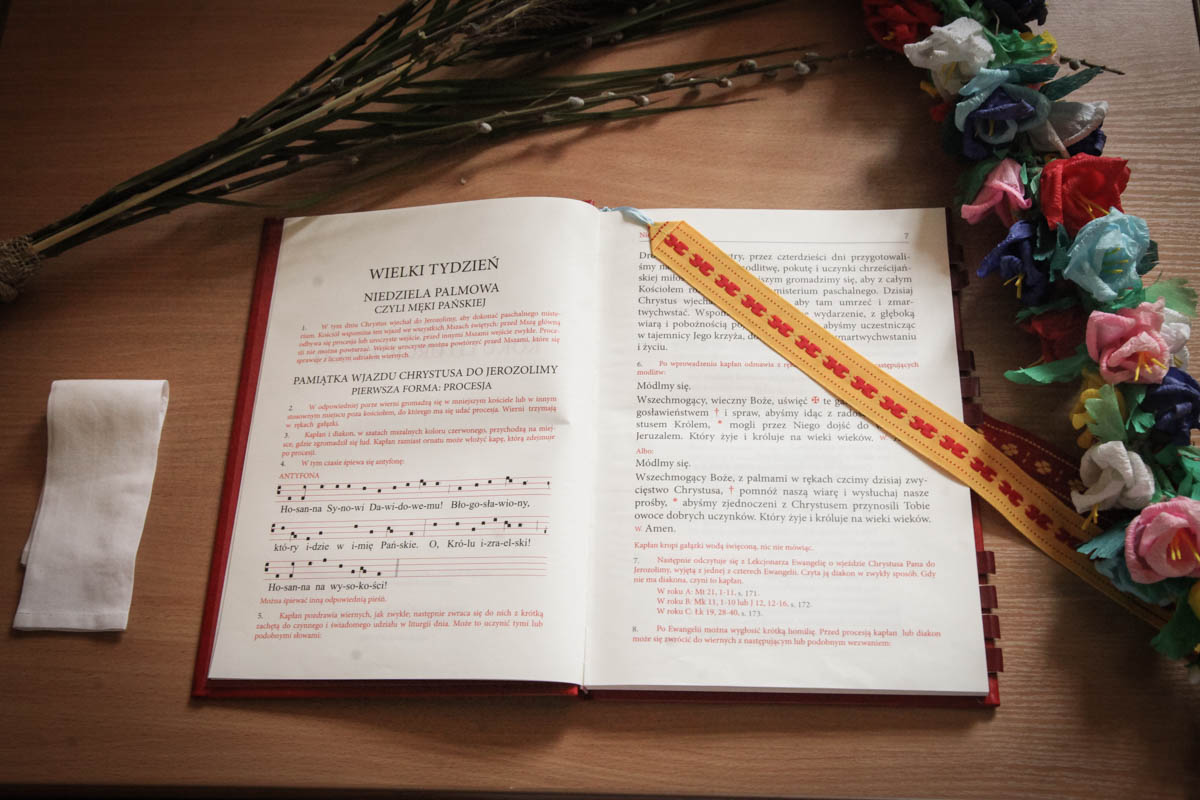 WIELKI TYDZIEŃ
NIEDZIELA PALMOWA
CZYLI MĘKI PAŃSKIEJ
1. W tym dniu Chrystus wjechał do Jerozolimy, aby dokonać paschalnego miste-
rium. Kościół wspomina ten wjazd we wszystkich Mszach świętych: przed Mszą główną
odbywa się procesja lub uroczyste wejście, przed innymi Mszami wejście zwykłe. Proce-
sji nie można powtarzać. Wejście uroczyste można powtórzyć przed Mszami, które się
sprawuje z licznym udziałem wiernych.
PAMIĄTKA WJAZDU CHRYSTUSA DO JEROZOLIMY
PIERWSZA FORMA: PROCESJA
2. W odpowiedniej porze wierni gromadzą się w mniejszym kościele lub w innym
stosownym miejscu poza kościołem, do którego ma się udać procesja. Wierni trzymają
w rękach gałązki.
3. Kapłan i diakon, w szatach mszalnych koloru czerwonego, przychodzą na miej-
sce, gdzie zgromadził się lud. Kapłan zamiast ornatu może włożyć kapę, którą zdejmuje
po procesji.
4. W tym czasie śpiewa się antyfonę:
ANTYFONA
Ho-san-na Sy-no-wi Da-wi-do-we-mu! Bło-go-sła-wio-ny,
któ-ry i-dzie w i-mię Pań-skie. O, Kró-lu i-zra-el-ski!
Ho-san-na na wy-so-ko-ści!
Można śpiewać inną odpowiednią pieśń.
5. Kapłan pozdrawia wiernych, jak zwykle; następnie zwraca się do nich z krótką
zachętą do czynnego i świadomego udziału w liturgii dnia. Może to uczynić tymi lub
podobnymi słowami:
7
przez czterdzieści dni przygotowali-
śmy modlitwę, pokutę i uczynki chrześcijań-
skiej gromadzimy się, aby z całym
Kościołem misterium paschalnego. Dzisiaj
Chrystus wjechał aby tam umrzeć i zmar-
twychwstać. wydarzenie, z głęboką
wiarą i pobożnością abyśmy uczestnicząc
w tajemnicy Jego krzyża,
i życiu.
6. Po wprowadzeniu kapłan odmawia z następujących
modlitw:
Módlmy się.
Wszechmogący, wieczny Boże, uświęć ✠ te
gosławieństwem † i spraw, abyśmy idąc z
stusem Królem, * mogli przez Niego dojść do
Jeruzalem. Który żyje i króluje na wieki wieków. W.
Albo:
Módlmy się.
Wszechmogący Boże, z palmami w rękach czcimy dzisiaj zwy-
cięstwo Chrystusa, † pomnóż naszą wiarę i wysłuchaj nasze
prośby, * abyśmy zjednoczeni z Chrystusem przynosili Tobie
owoce dobrych uczynków. Który żyje i króluje na wieki wieków.
W. Amen.
Kapłan kropi gałązki wodą święconą, nic nie mówiąc.
7. Następnie odczytuje się z Lekcjonarza Ewangelię o wjeździe Chrystusa Pana do
Jerozolimy, wyjętą z jednej z czterech Ewangelii. Czyta ją diakon w zwykły sposób. Gdy
nie ma diakona, czyni to kapłan.
W roku A: Mt 21, 1-11, s. 171.
W roku B: Mk 11, 1-10 lub J 12, 12-16, s. 172.
W roku C: Łk 19, 28-40, s. 173.
8. Po Ewangelii można wygłosić krótką homilię. Przed procesją kapłan lub diakon
może się zwrócić do wiernych z następującym lub podobnym wezwaniem: